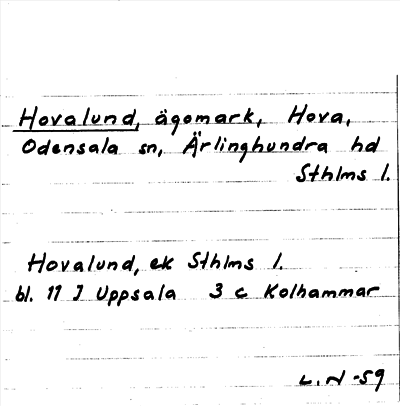 Hovalund, ägomark, Hova,
Odensala sn, Ärlinghundra hd
Sthlms l.
Hovalund, ek Sthlms l.
bl. 11 I Uppsala 3 c Kolhammar
L.N -59